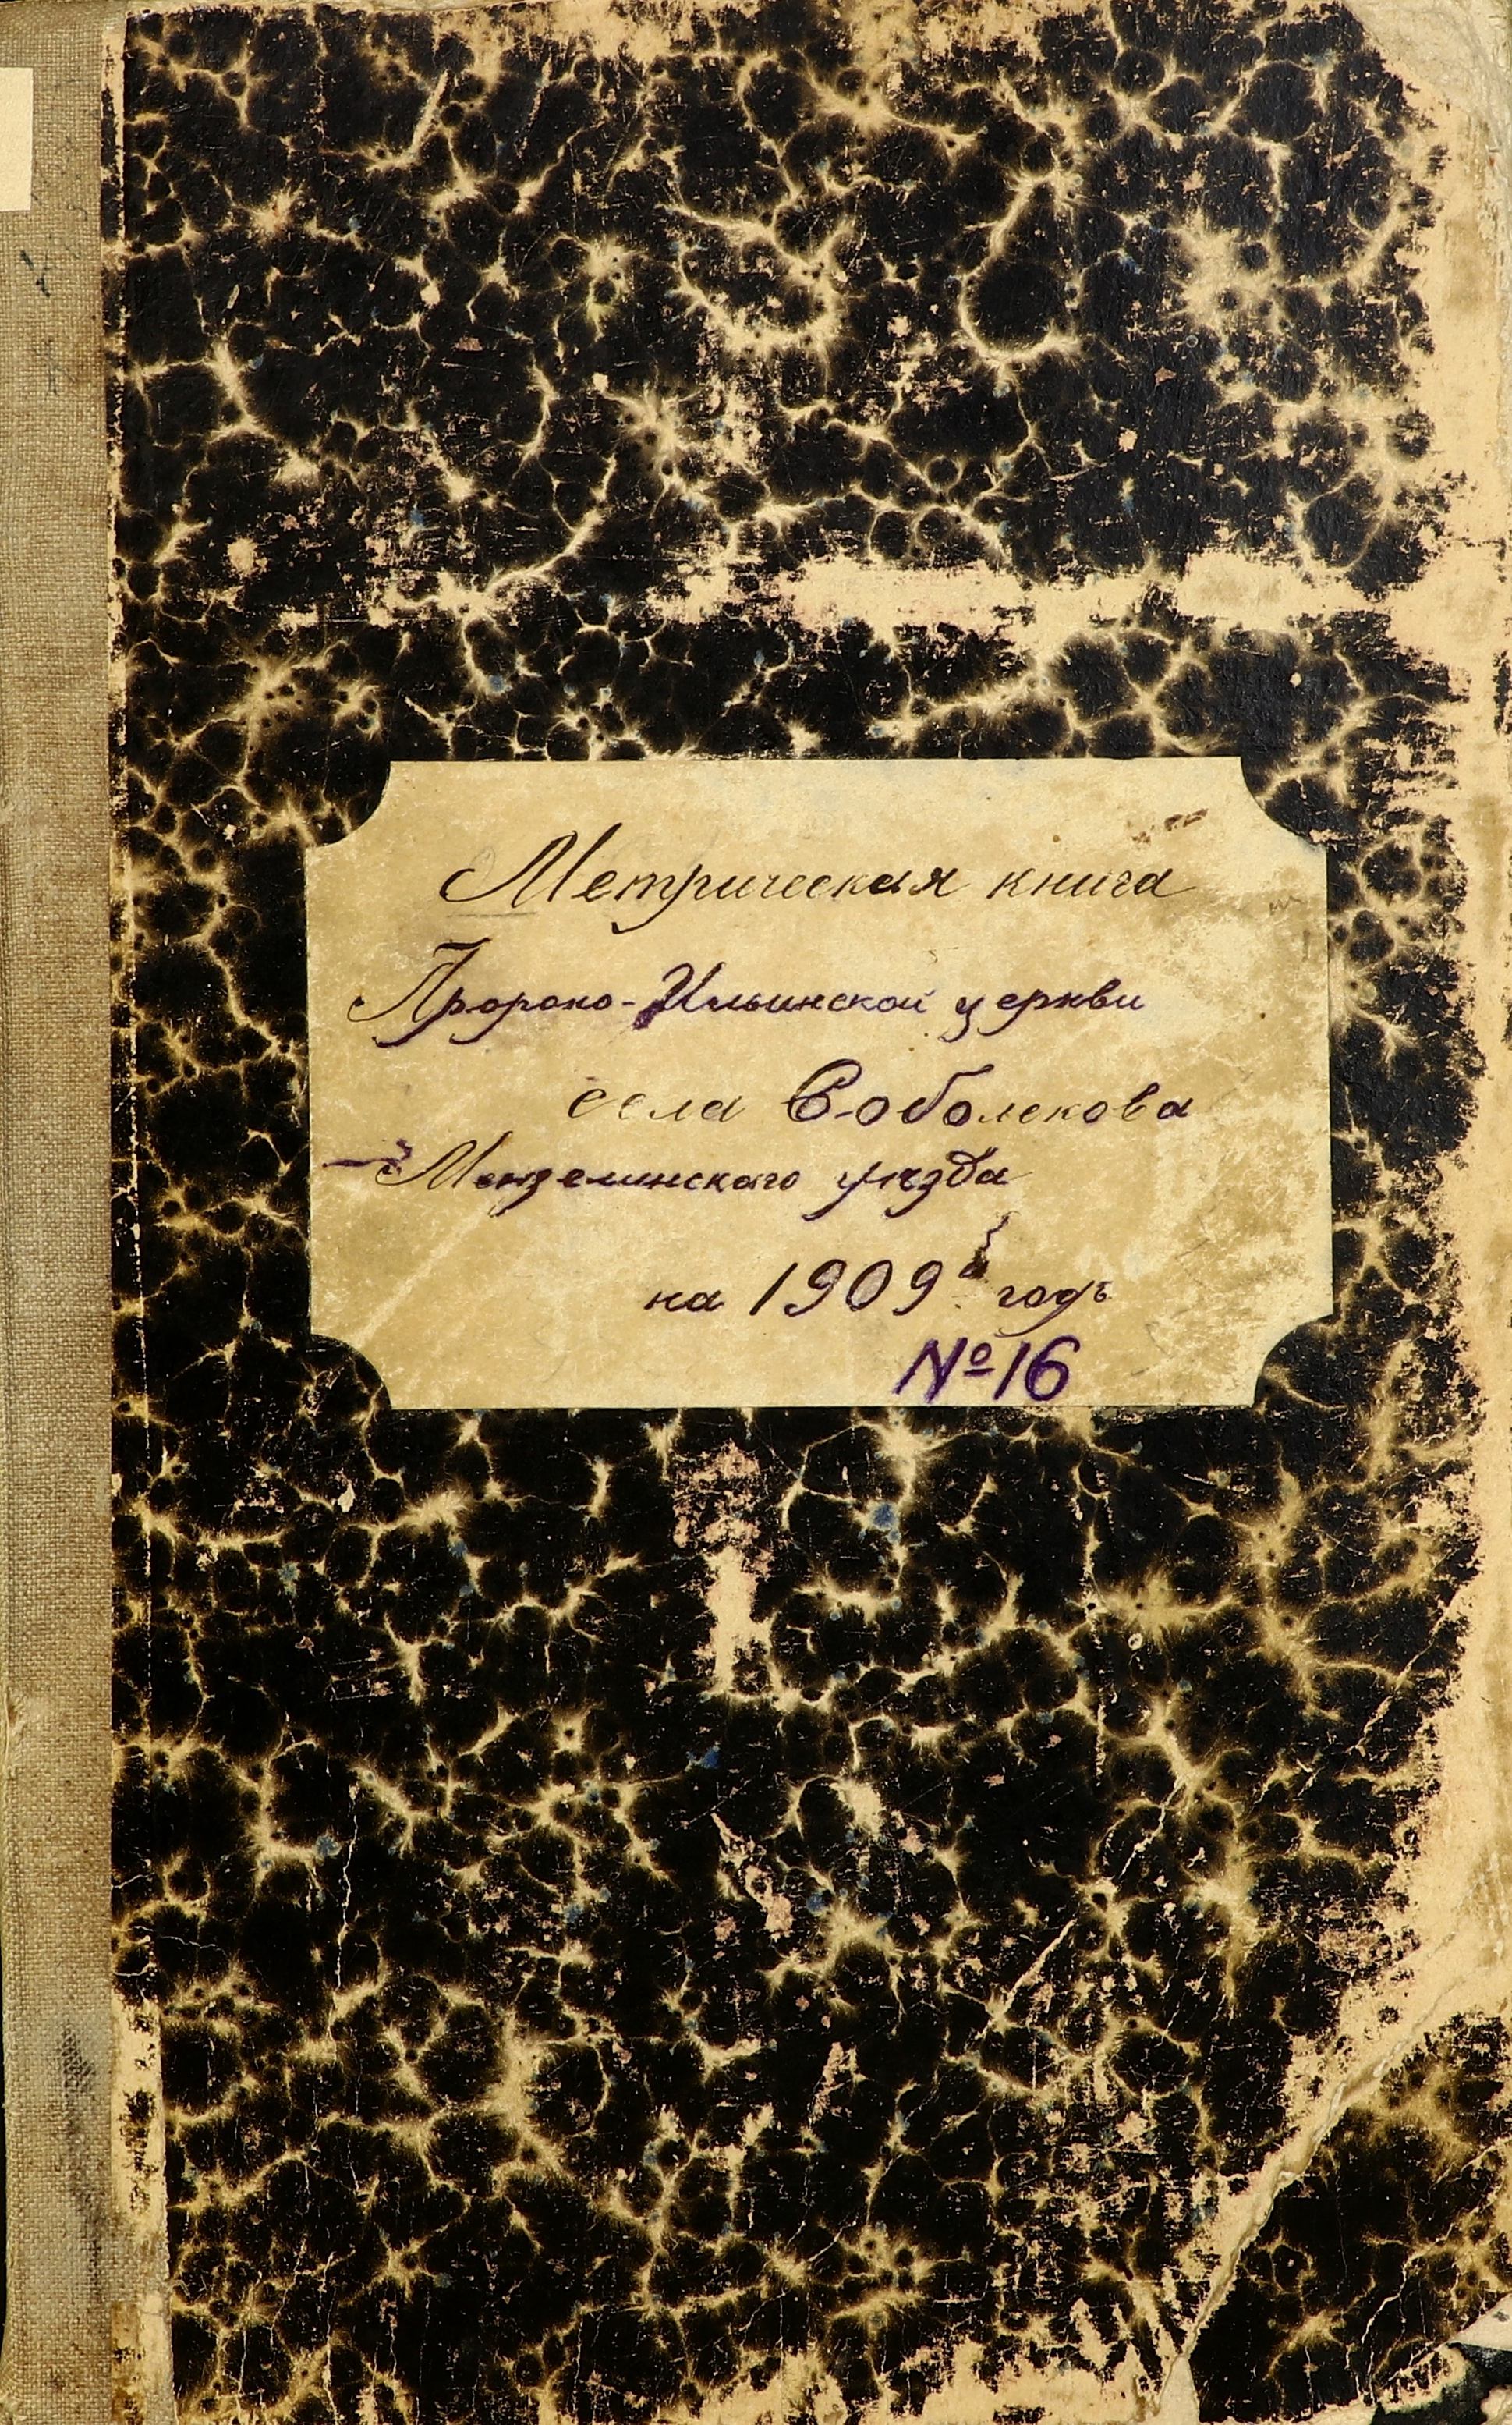 Метрическая книга
Пророко-Ильинской церкви
села Соболекова
Мензелинскаго уѣзда
на 1909 годъ
№16